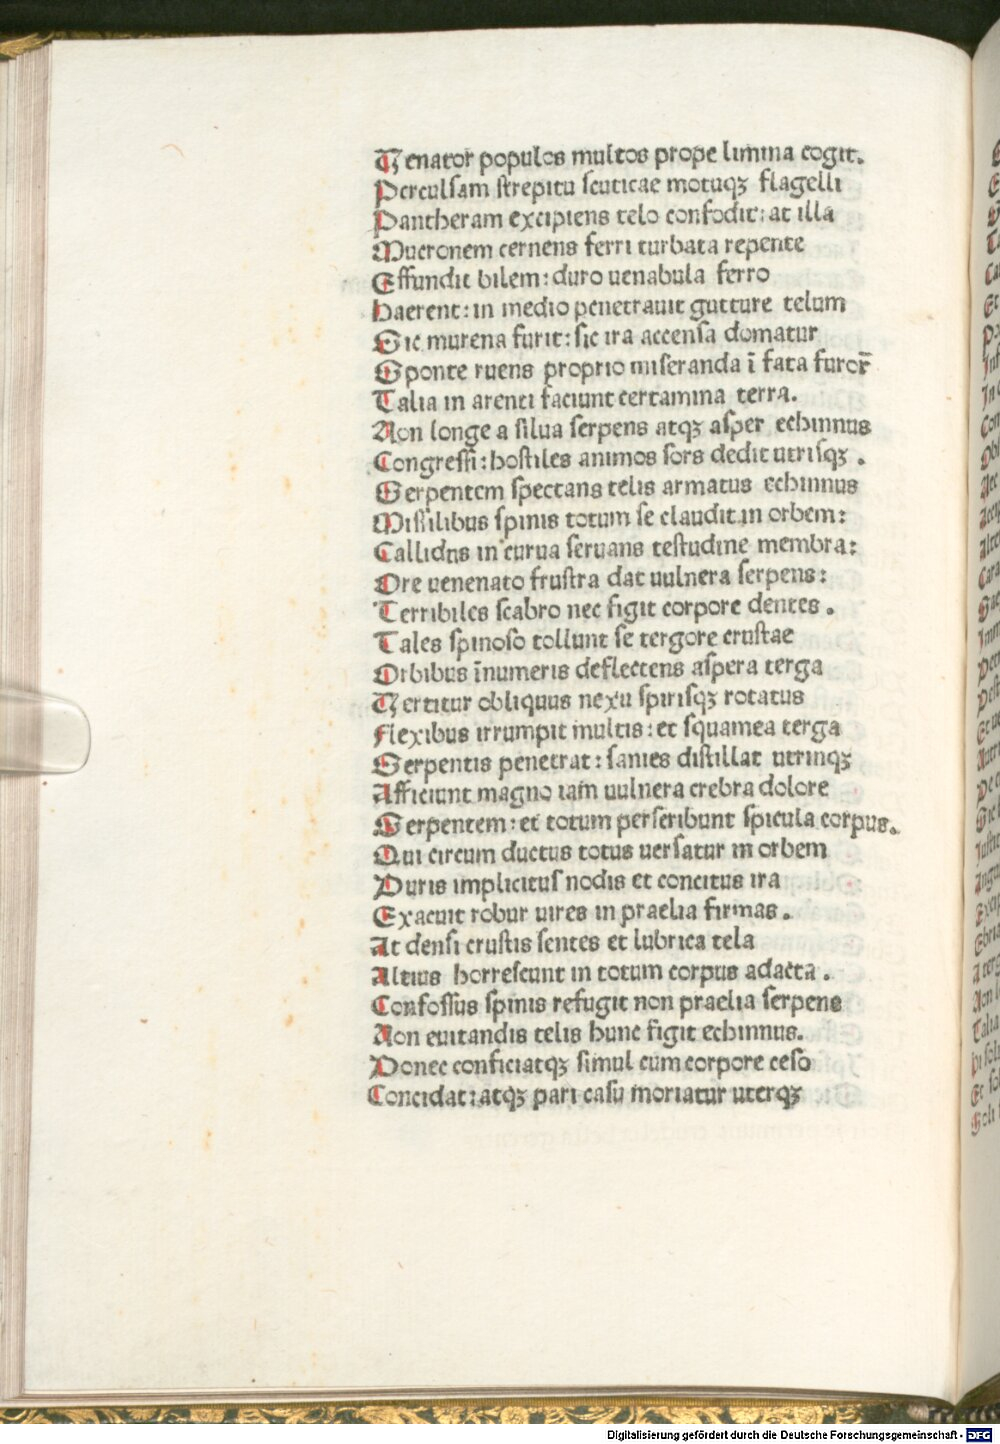 Venator populos multos prope limina cogit.
Perculsam strepitu scuticae motuqꝫ flagelli
Pantheram excipiens telo confodit: at illa
Mucronem cernens ferri turbata repente
Effundit bilem: duro uenabula ferro
haerent: in medio penetrauit gutture telum
Sic murena furit: sic ira accensa domatur
Sponte ruens proprio miseranda ī fata furor̄
Talia in arenti faciunt certamina terra.
Non longe a silua serpens atqꝫ asper echinnus
Congressi: hostiles animos sors dedit utrisqꝫ .
Serpentem spectans telis armatus echinnus
Missilibus spinis totum se claudit in orbem:
Callidus in curua seruans testudine membra:
Ore uenenato frustra dat uulnera serpens:
Terribiles scabro nec figit corpore dentes .
Tales spinoso tollunt se tergore crustae
Orbibus īnumeris deflectens aspera terga
Vertitur obliquus nexu spirisqꝫ rotatus
flexibus irrumpit multis: et squamea terga
Serpentis penetrat: sanies distillat utrinqꝫ
Afficiunt magno iam uulnera crebra dolore
Serpentem: et totum perscribunt spicula corpus.
Qui circum ductus totus uersatur in orbem
Duris implicitus nodis et concitus ira
Exacuit robur uires in praelia firmas .
At densi crustis sentes et lubrica tela
Altius horrescunt in totum corpus adacta .
Confossus spinis refugit non praelia serpens
Non euitandis telis hunc figit echinnus.
Donec conficiatqꝫ simul cum corpore ceso
Concidat: atqꝫ pari casu moriatur uterqꝫ
Digitalisierung gefördert durch die Deutsche Forschungsgemeinschaft - DFG